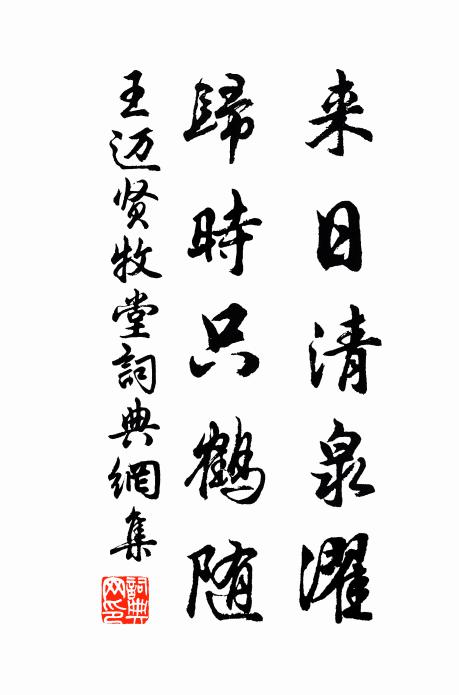 来日清泉濯
歸時只鶴随
王迈贤牧堂詞典網集
詞典网印